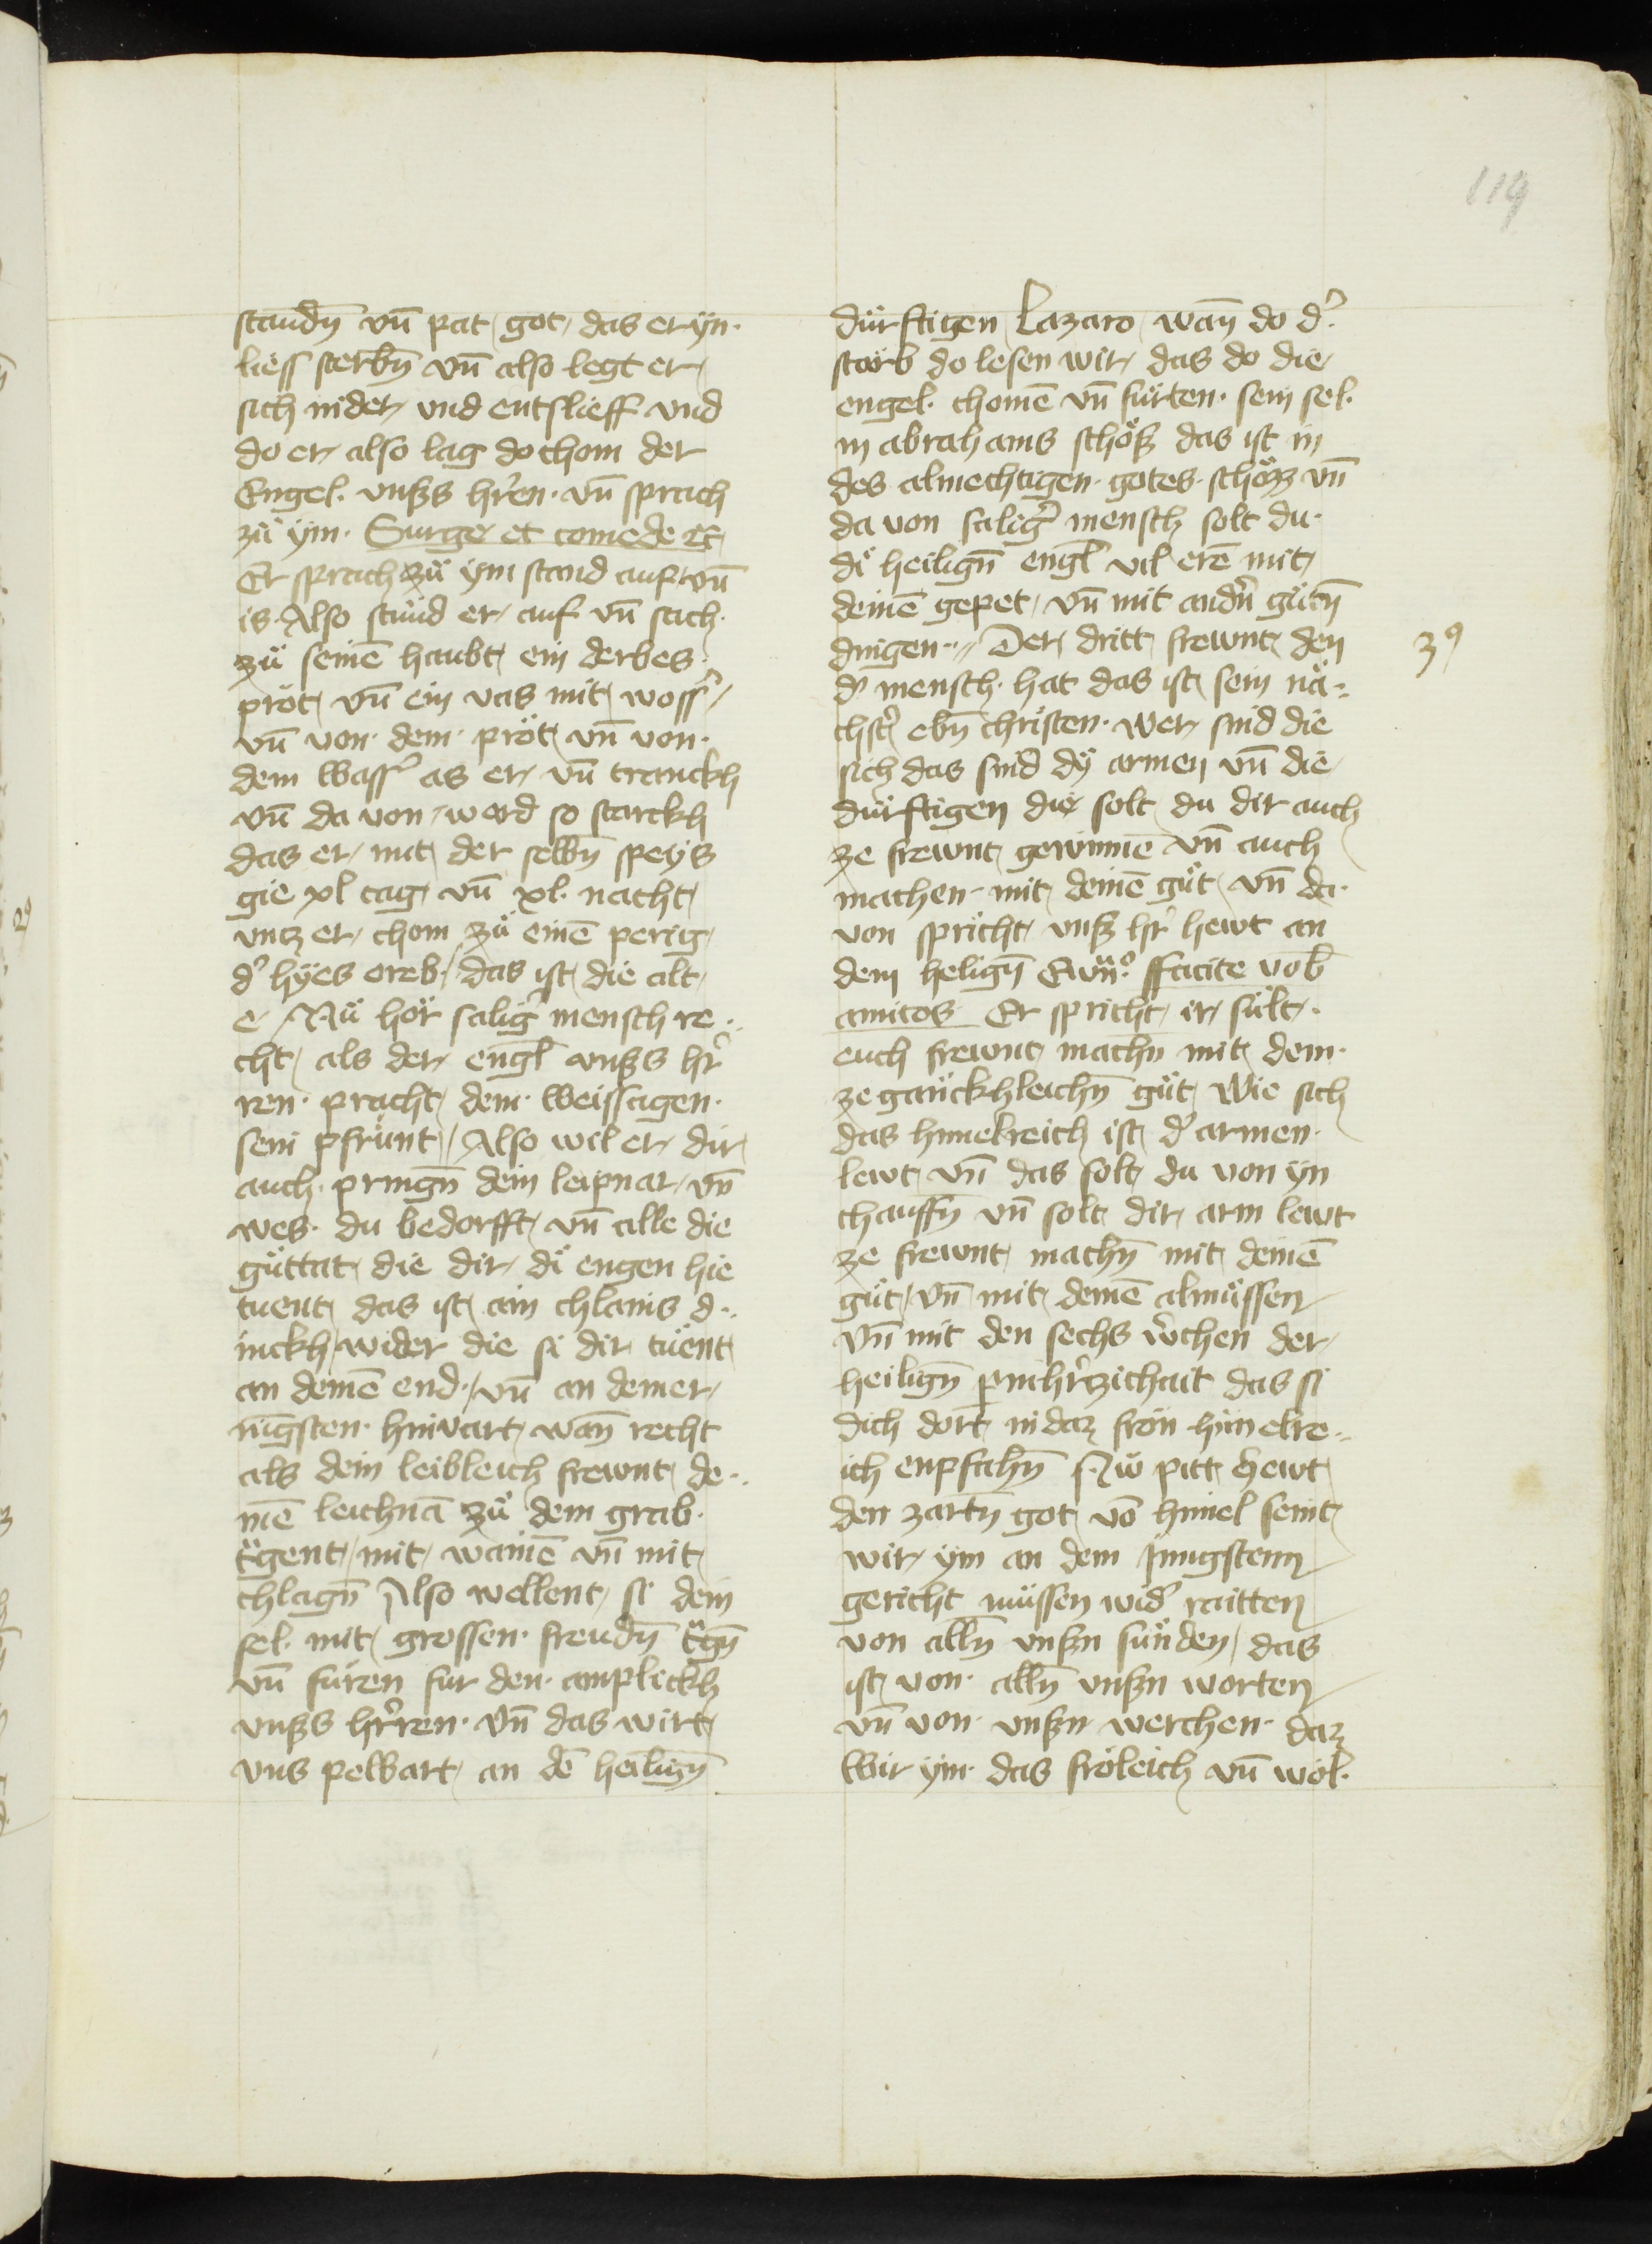 119
staudn̄ vn̄ pat got das er ÿn·
liess sterbn̄ vn̄ also legt er
sich nider vnd entslieff vnd
do er also lag do chom der
Engel· vnßs hr̄en· vn̄ sprach
zü ÿm· Surge et comede ec̄
Er sprach zü ÿm stand auf vn̄
is· Also stuͤnd er auf vn̄ sach·
zü seinē haubt ein derbes·
pröt vn̄ ein vas mit wossʼ
vn̄ von· dem· pröt vn̄ von·
dem wassʼ as er vn̄ tranckh
vn̄ da von ward so starckh
das er mit der selbn̄ speÿs
gie xl tag vn̄ xl· nacht
vntz er chom zü einē perig
dʼ hÿes oreb· das ist die alt
e Nü hör saligʼ mensch re··
cht als der engl̄ vnßs hrʼ
ren· pracht dem· weissagen·
sein pfruͤnt Also wil er dir
auch· pringn̄ dein leipnar vn̄
wes· du bedorfft vn̄ alle die
güttat die dir dÿ engen hie
tuent das ist ain chlains d··
inckh wider die si dir tüent
an deinē end· vn̄ an deiner
nigsten· hinvart wan̄ recht
als dein leibleich frewnt de··
inē leichnā zü dem grab·
tͣgent mit wainē vn̄ mit
chlagn̄ Also wellent si dein
sel· mit grossen· freudn̄ tͣgn̄
vn̄ füren fur den· anplickh
vnßs hrʼren· vn̄ das wirt
vns pelbart an dē heilign̄
dürftigen Lazaro wan̄ do dʼ·
starb do lesen wir das do die
engel· chomē vn̄ fürten· sein sel·
in abrahams schöß das ist in
des almechtigen· gotes· schöz vn̄
da von saligʼ mensch solt du·
dÿ heilign̄ engl̄ vil erē mit
deinē gepet vn̄ mit andʼn gütn̄
dingen·· Der dritt frewnt den
3⁹
dʼ mensch· hat das ist sein nä··
chstʼ ebn̄ christen· Wer sind die
sich das sind dÿ armen vn̄ die
dürftigen die solt du dir auch
ze frewnt gewinnē vn̄ auch
machen· mit deinē güt vn̄ da·
von spricht vnß hrʼ hewt an
dem heilign̄ Ewn̄·⁰ ffacite vob̄
amicos Er spricht ir sült·
euch frewnt machn̄ mit dem·
zegaückhleichn̄ güt Wie sich
das himelreich ist dʼ armen·
lewt vn̄ das solt du von ÿn
chauffn̄ vn̄ solt dir arm lewt
ze frewnt machn̄ mit deinē
güt vn̄ mit deinē almüssen
vn̄ mit den sechs wʼchen der
heilign̄ pmhʼrzichait das si
dich dort in daz frön himelre··
ich enpfahn̄ Nü pitt hewt
den zartn̄ got vō himel seint
wir ÿm an dem Jungstenn
gericht müssen widʼ raitten
von alln̄ vnßn sünden das
ist von· alln̄ vnßn worten
vn̄ von· vnßn werchen· daz
wir ÿm· das fröleich vn̄ wol·